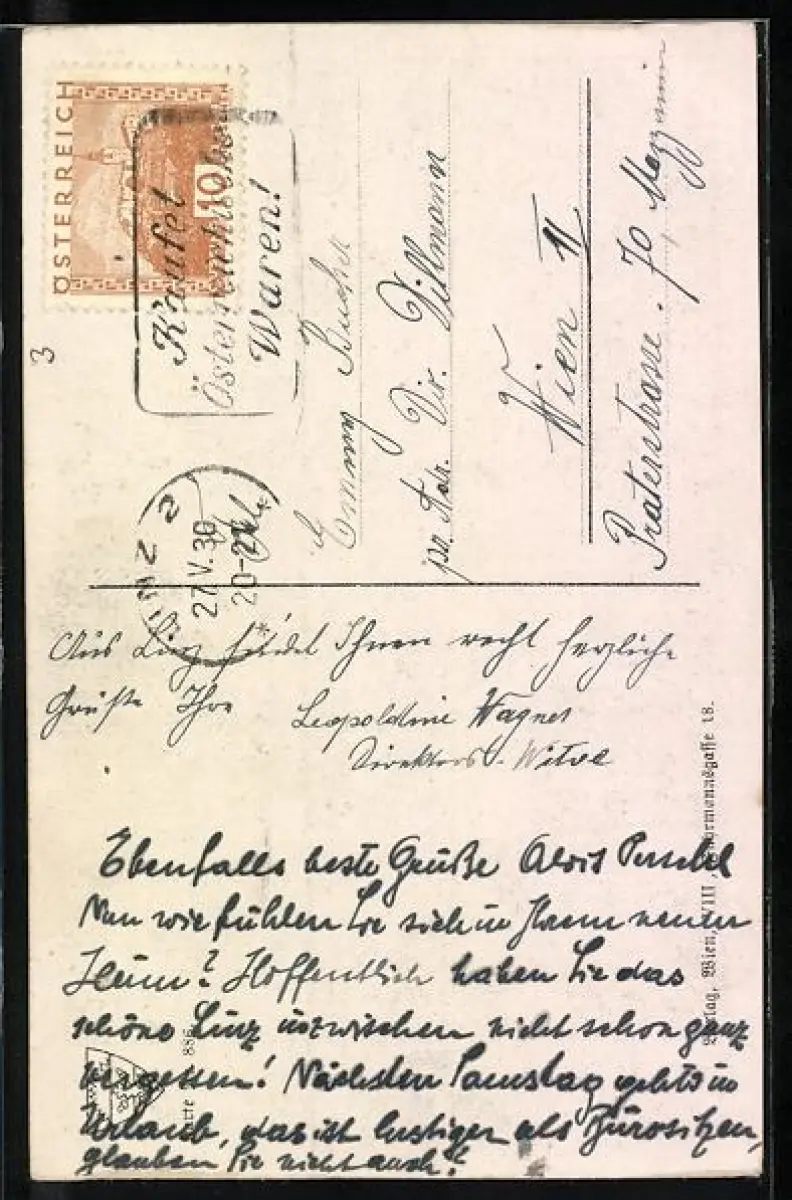 ÖSTERREICH
10
Kaufet
Österreichische
Waren!
3
LINZ 2
27.V.30
20-21
Emmy Bucher
pr. Adr. Dir. Dillmann
Wien II
Praterstrasse. 70 Mezzanin
Aus Linz sendet Ihnen recht herzliche
Grüße Ihre Leopoldine Wagner
Direktors-Witwe
Ebenfalls beste Grüße Alois
Nun wie fühlen Sie sich in Ihrem neuen
Heim? Hoffentlich haben Sie das
schöne Linz inzwischen nicht schon ganz
vergessen! Nächsten Samstag geht's in
Urlaub, das ist lustiger als Bürositzen,
glauben Sie nicht auch?
Verlag, Wien, VIII 18.